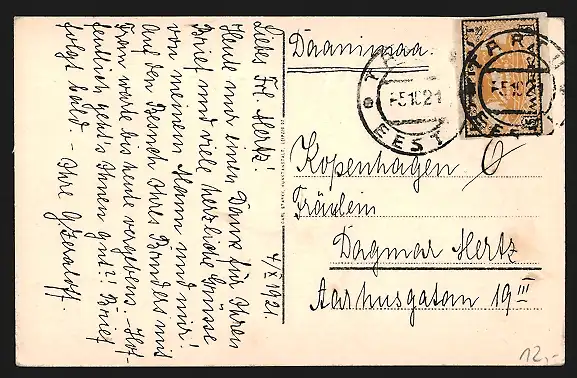 4/X 1921.
Liebes Frl. Hertz!
Heute nur einen Dank für Ihren
Brief und viele herzliche Grüsse
von meinem Mann und mir!
Auf den Besuch Ihres Bruders mit
Frau warte bis heute vergebens. Hof-
fentlich geht's Ihnen gut?! Brief
folgt bald – Ihre
Daanimaa.
TARTU
-5 10 21
EESTI
TARTU
-5 10 21
EESTI
Kopenhagen
Fräulein
Dagmar Hertz
Aarhusgatan 19 III
12,-